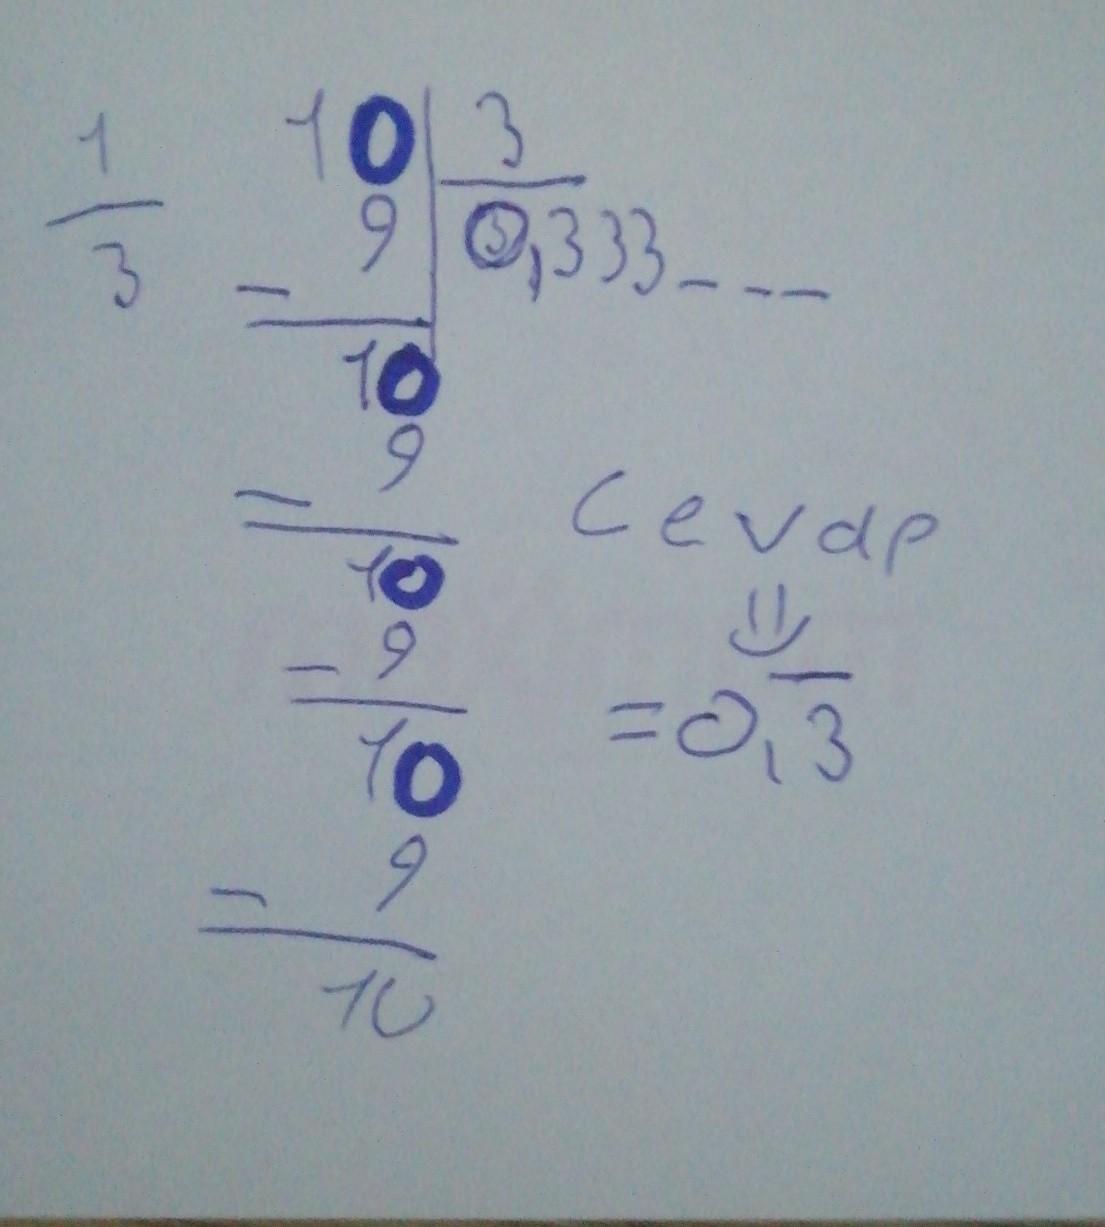 1/3
10 | 3
9 | 0,333---
-
10
9
-
10
- 9
10
9
-
10
Cevap
= 0,3̅